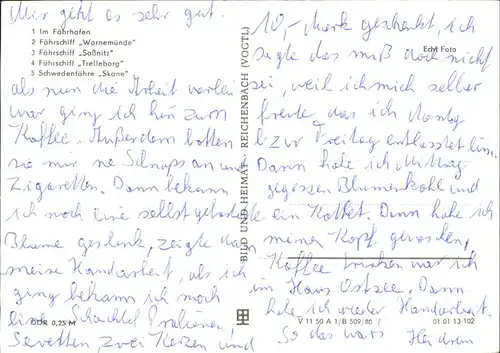 Mir geht es sehr gut.
1 Im Fährhafen
2 Fährschiff „Warnemünde"
3 Fährschiff „Saßnitz"
4 Fährschiff „Trelleborg"
5 Schwedenfähre „Skane"
als nun die Arbeit vorbei
war ging ich hin zum
Kaffee. Außerdem botten
sie mir ne Schnaps an und
Zigaretten. Dann bekam
ich noch eine selbst gebastelte
Blume geschenk, zeigte dann
meine Handarbeit, als ich
ging bekam ich noch
Schachtel Pralinen
Servetten, zwei Kerzen und
DDR 0,25 M
BILD UND HEIMAT REICHENBACH (VOGTL)
10,- Mark geschenkt, ich
sagte das muß doch nicht
Echt Foto
sei, weil ich mich selber
freute, das ich Montag
bzw Freitag entlasstet bin.
Dann habe ich Mittag
gegessen Blumenkohl und
ein Kottlet. Dann habe ich
meinen Kopf gewaschen,
Kaffee trinken war ich
im Haus Ostsee. Dann
habe ich wieder Handarbeit.
V 11 50 A 1/B 509/80 01 01 13 102
So das wars